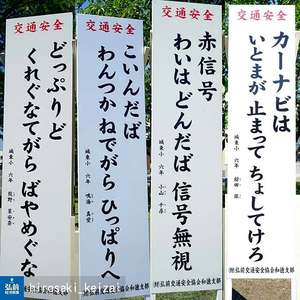 交通安全
どっぷりど
くれぐなてがら ばやめぐな
城東小 六年
交通安全
こいんだば
わんつか ねでがら ひっぱりへ
城東小 六年 鳴海
(財)弘前交通安全協会和徳支部
交通安全
赤信号
わいは どんだば 信号無視
城東小 六年 小山
(財)弘前交通安全協会和徳支部
交通安全
カーナビは
いとまが 止まって ちょしてけろ
城東小 六年
(財)弘前交通安全協会和徳支部
弘前
経済新聞
hirosaki_keizai